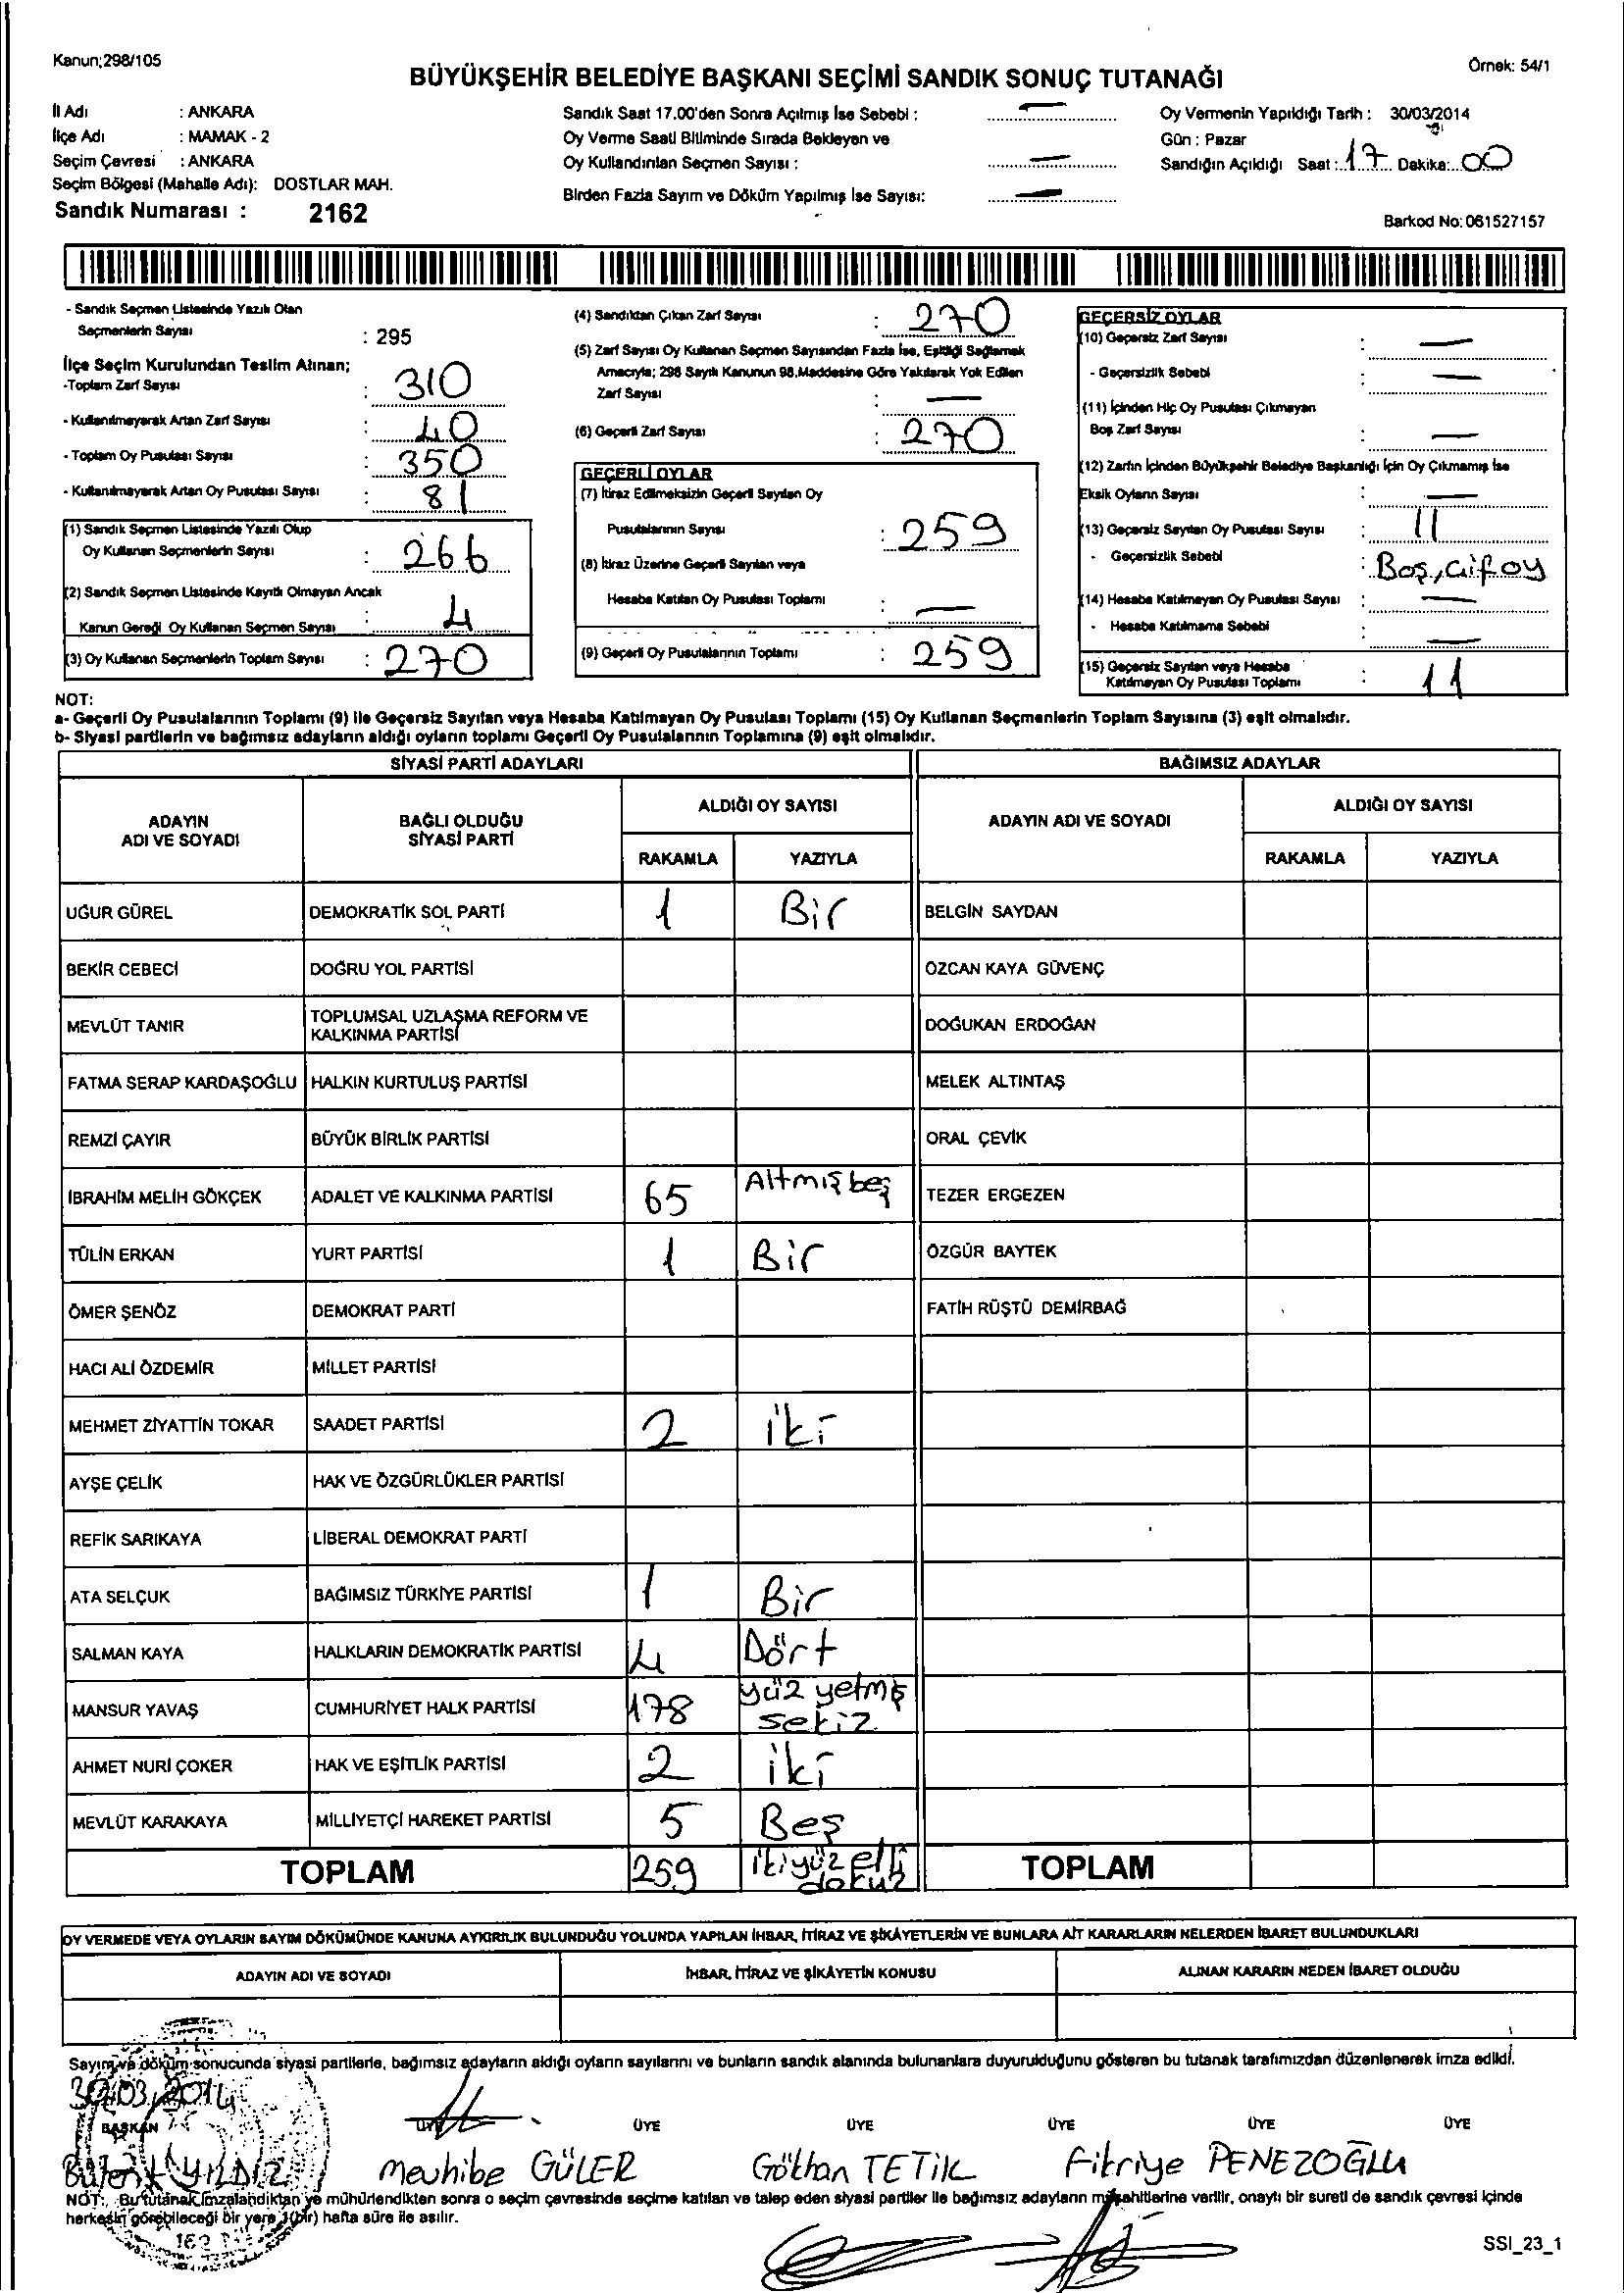 Kanun;298/105
Örnek: 54/1
BÜYÜKŞEHİR BELEDİYE BAŞKANI SEÇİMİ SANDIK SONUÇ TUTANAĞI
İl Adı : ANKARA
İlçe Adı : MAMAK - 2
Seçim Çevresi : ANKARA
Seçim Bölgesi (Mahalle Adı): DOSTLAR MAH.
Sandık Numarası : 2162
Sandık Saat 17.00'den Sonra Açılmış İse Sebebi : —
Oy Verme Saati Bitiminde Sırada Bekleyen ve
Oy Kullandırılan Seçmen Sayısı : —
Birden Fazla Sayım ve Döküm Yapılmış İse Sayısı: —
Oy Vermenin Yapıldığı Tarih : 30/03/2014
Gün : Pazar
Sandığın Açıldığı Saat : 17 Dakika: 00
Barkod No: 061527157
- Sandık Seçmen Listesinde Yazılı Olan
Seçmenlerin Sayısı : 295
İlçe Seçim Kurulundan Teslim Alınan;
-Toplam Zarf Sayısı : 310
- Kullanılmayarak Artan Zarf Sayısı : 40
- Toplam Oy Pusulası Sayısı : 350
- Kullanılmayarak Artan Oy Pusulası Sayısı : 81
(1) Sandık Seçmen Listesinde Yazılı Olup
Oy Kullanan Seçmenlerin Sayısı : 266
(2) Sandık Seçmen Listesinde Kayıtlı Olmayan Ancak
Kanun Gereği Oy Kullanan Seçmen Sayısı : 4
(3) Oy Kullanan Seçmenlerin Toplam Sayısı : 270
(4) Sandıktan Çıkan Zarf Sayısı : 270
(5) Zarf Sayısı Oy Kullanan Seçmen Sayısından Fazla İse, Eşitliği Sağlamak
Amacıyla; 298 Sayılı Kanunun 98.Maddesine Göre Yakılarak Yok Edilen
Zarf Sayısı : —
(6) Geçerli Zarf Sayısı : 270
GEÇERLİ OYLAR
(7) İtiraz Edilmeksizin Geçerli Sayılan Oy
Pusulalarının Sayısı : 259
(8) İtiraz Üzerine Geçerli Sayılan veya
Hesaba Katılan Oy Pusulası Toplamı : —
(9) Geçerli Oy Pusulalarının Toplamı : 259
GEÇERSİZ OYLAR
(10) Geçersiz Zarf Sayısı : —
- Geçersizlik Sebebi : —
(11) İçinden Hiç Oy Pusulası Çıkmayan
Boş Zarf Sayısı : —
(12) Zarfın İçinden Büyükşehir Belediye Başkanlığı İçin Oy Çıkmamış İse
Eksik Oyların Sayısı : —
(13) Geçersiz Sayılan Oy Pusulası Sayısı : 11
- Geçersizlik Sebebi : Boş, Çift oy
(14) Hesaba Katılmayan Oy Pusulası Sayısı : —
- Hesaba Katılmama Sebebi : —
(15) Geçersiz Sayılan veya Hesaba
Katılmayan Oy Pusulası Toplamı : 11
NOT:
a- Geçerli Oy Pusulalarının Toplamı (9) ile Geçersiz Sayılan veya Hesaba Katılmayan Oy Pusulası Toplamı (15) Oy Kullanan Seçmenlerin Toplam Sayısına (3) eşit olmalıdır.
b- Siyasi partilerin ve bağımsız adayların aldığı oyların toplamı Geçerli Oy Pusulalarının Toplamına (9) eşit olmalıdır.
SİYASİ PARTİ ADAYLARI BAĞIMSIZ ADAYLAR
ADAYIN ADI VE SOYADI BAĞLI OLDUĞU SİYASİ PARTİ ALDIĞI OY SAYISI ADAYIN ADI VE SOYADI ALDIĞI OY SAYISI
RAKAMLA YAZIYLA RAKAMLA YAZIYLA
UĞUR GÜREL DEMOKRATİK SOL PARTİ 1 Bir BELGİN SAYDAN
BEKİR CEBECİ DOĞRU YOL PARTİSİ ÖZCAN KAYA GÜVENÇ
MEVLÜT TANIR TOPLUMSAL UZLAŞMA REFORM VE KALKINMA PARTİSİ DOĞUKAN ERDOĞAN
FATMA SERAP KARDAŞOĞLU HALKIN KURTULUŞ PARTİSİ MELEK ALTINTAŞ
REMZİ ÇAYIR BÜYÜK BİRLİK PARTİSİ ORAL ÇEVİK
İBRAHİM MELİH GÖKÇEK ADALET VE KALKINMA PARTİSİ 65 Altmışbeş TEZER ERGEZEN
TÜLİN ERKAN YURT PARTİSİ 1 Bir ÖZGÜR BAYTEK
ÖMER ŞENÖZ DEMOKRAT PARTİ FATİH RÜŞTÜ DEMİRBAĞ
HACI ALİ ÖZDEMİR MİLLET PARTİSİ
MEHMET ZİYATTİN TOKAR SAADET PARTİSİ 2 iki
AYŞE ÇELİK HAK VE ÖZGÜRLÜKLER PARTİSİ
REFİK SARIKAYA LİBERAL DEMOKRAT PARTİ
ATA SELÇUK BAĞIMSIZ TÜRKİYE PARTİSİ 1 Bir
SALMAN KAYA HALKLARIN DEMOKRATİK PARTİSİ 4 Dört
MANSUR YAVAŞ CUMHURİYET HALK PARTİSİ 178 yüz yetmiş sekiz
AHMET NURİ ÇOKER HAK VE EŞİTLİK PARTİSİ 2 iki
MEVLÜT KARAKAYA MİLLİYETÇİ HAREKET PARTİSİ 5 Beş
TOPLAM 259 ikiyüz elli dokuz TOPLAM
OY VERMEDE VEYA OYLARIN SAYIM DÖKÜMÜNDE KANUNA AYKIRILIK BULUNDUĞU YOLUNDA YAPILAN İHBAR, İTİRAZ VE ŞİKÂYETLERİN VE BUNLARA AİT KARARLARIN NELERDEN İBARET BULUNDUKLARI
ADAYIN ADI VE SOYADI İHBAR, İTİRAZ VE ŞİKÂYETİN KONUSU ALINAN KARARIN NEDEN İBARET OLDUĞU
Sayım ve döküm sonucunda siyasi partilerle, bağımsız adayların aldığı oyların sayılarını ve bunların sandık alanında bulunanlara duyurulduğunu gösteren bu tutanak tarafımızdan düzenlenerek imza edildi.
30/03/2014
BAŞKAN ÜYE ÜYE ÜYE ÜYE ÜYE ÜYE
Bülent YILDIZ Mevhibe GÜLER Gökhan TETİK Fikriye PENEZOĞLU
NOT: Bu tutanak imzalandıktan ve mühürlendikten sonra o seçim çevresinde seçime katılan ve talep eden siyasi partiler ile bağımsız adayların müşahitlerine verilir, onaylı bir sureti de sandık çevresi içinde
herkesin görebileceği bir yere 1(bir) hafta süre ile asılır.
SSI_23_1